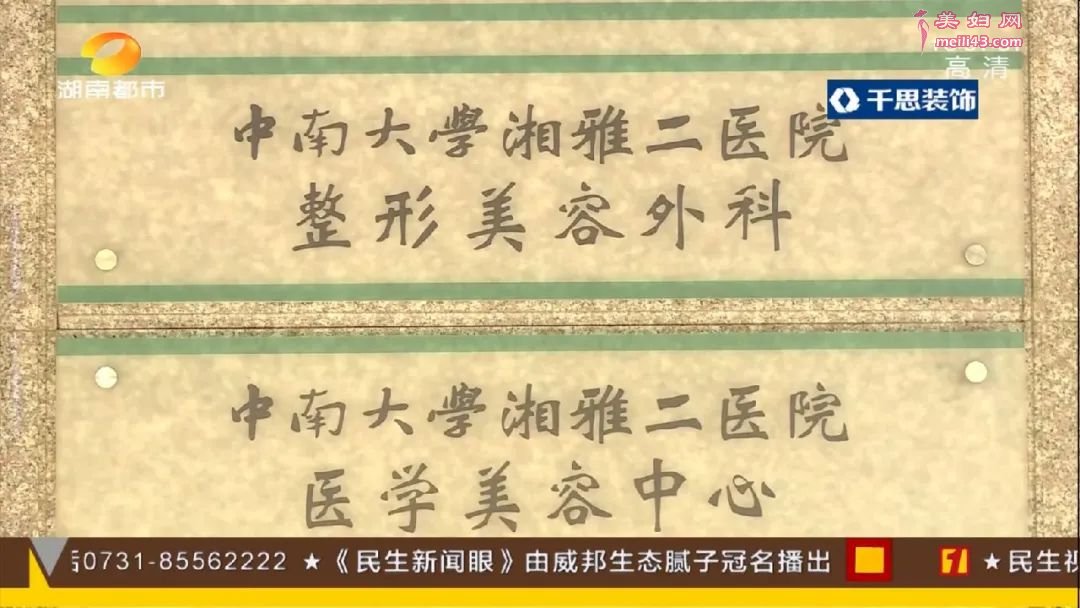 美妇网
meili43.com
高清
湖南都市
千思装饰
中南大學湘雅二医院
整形美容外科
中南大學湘雅二医院
医学美容中心
0731-85562222 ★《民生新闻眼》由威邦生态腻子冠名播出 ★民生视